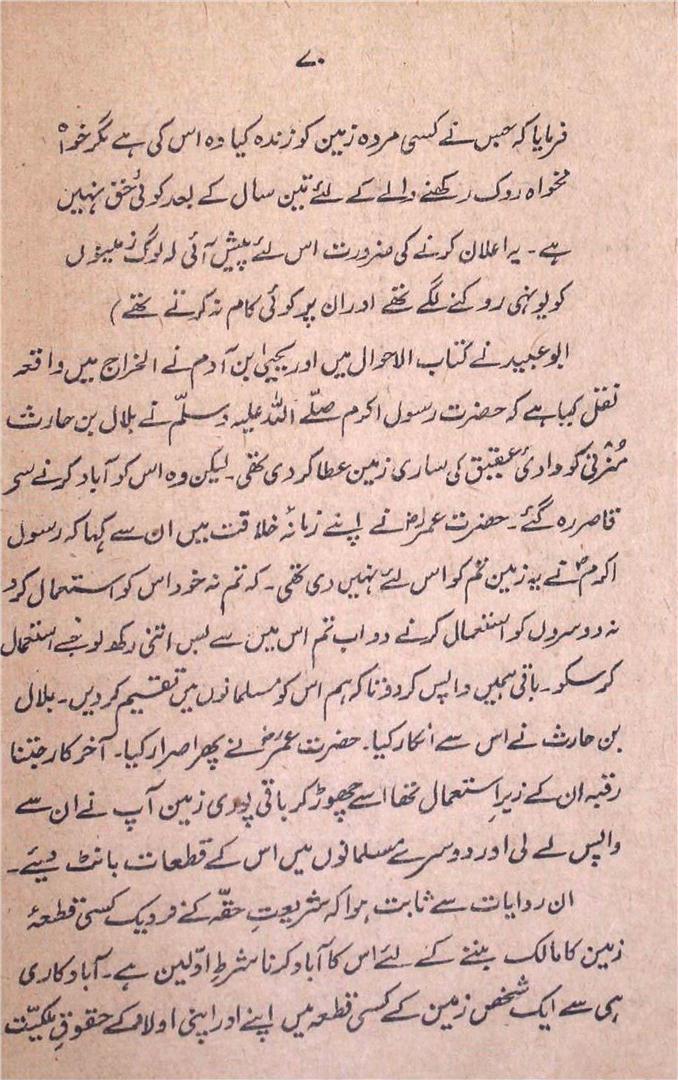 ۷۰
فرمایا کہ جس نے کسی مردہ زمین کو زندہ کیا وہ اس کی ہے مگر خواہ
مخواہ روک رکھنے والے کے لئے تین سال کے بعد کوئی حق نہیں
ہے۔ یہ اعلان کرنے کی ضرورت اس لئے پیش آئی کہ لوگ زمینوں
کو یونہی روکنے لگے تھے اور ان پر کوئی کام نہ کرتے تھے)
ابو عبید نے کتاب الاحوال میں اور یحییٰ بن آدم نے الخراج میں واقعہ
نقل کیا ہے کہ حضرت رسول اکرم صلّے اللہ علیہ وسلّم نے بلال بن حارث
مُزنی کو وادیٔ عقیق کی ساری زمین عطا کر دی تھی۔ لیکن وہ اس کو آباد کرنے سے
قاصر رہ گئے۔ حضرت عمرؓ نے اپنے زمانۂ خلافت میں ان سے کہا کہ رسول
اکرمؐ نے یہ زمین تم کو اس لئے نہیں دی تھی۔ کہ تم نہ خود اس کو استعمال کرو
نہ دوسروں کو استعمال کرنے دو اب تم اس میں سے بس اتنی رکھ لو جسے استعمال
کر سکو۔ باقی ہمیں واپس کر دو تا کہ ہم اس کو مسلمانوں میں تقسیم کر دیں۔ بلال
بن حارث نے اس سے انکار کیا۔ حضرت عمرؓ نے پھر اصرار کیا۔ آخر کار جتنا
رقبہ ان کے زیرِ استعمال تھا اسے چھوڑ کر باقی پوری زمین آپ نے ان سے
واپس لے لی اور دوسرے مسلمانوں میں اس کے قطعات بانٹ دیئے۔
ان روایات سے ثابت ہوا کہ شریعتِ حقّہ کے نزدیک کسی قطعۂ
زمین کا مالک بننے کے لئے اس کا آباد کرنا شرطِ اوّلین ہے۔ آباد کاری
ہی سے ایک شخص زمین کے کسی قطعہ میں اپنے اور اپنی اولاد کے حقوقِ ملکیّت